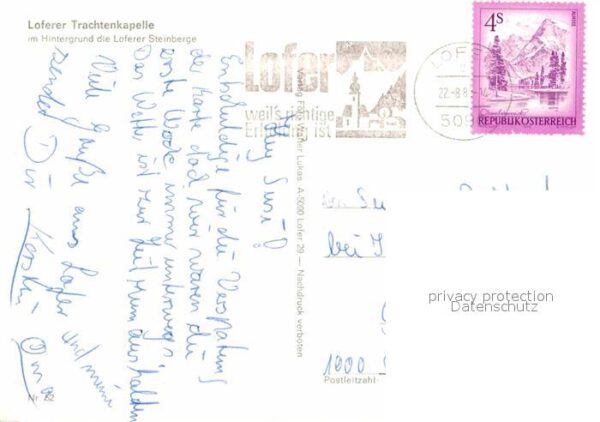 Loferer Trachtenkapelle
im Hintergrund die Loferer Steinberge
Lofer
weil's richtige
Erholung ist
LOFER
22.-8.8
509
4S
REPUBLIK ÖSTERREICH
Hey Susi!
Entschuldige für die Verspätung
der Karte doch wir waren die
erste Woche immer unterwegs.
Das Wetter ist zur Zeit zum aushalten
Viele Grüße aus Lofer
sendet Dir Kerstin
und meine
Oma
Verlag Foto Walter Lukas A-5090 Lofer 29 — Nachdruck verboten
bei
1000
Postleitzahl
Nr. 22
privacy protection
Datenschutz